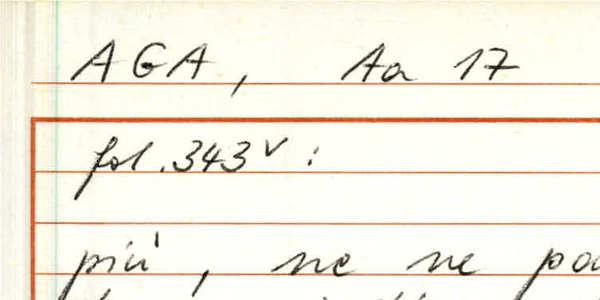 AGA, Aa 17
fol. 343v:
più, ne ne